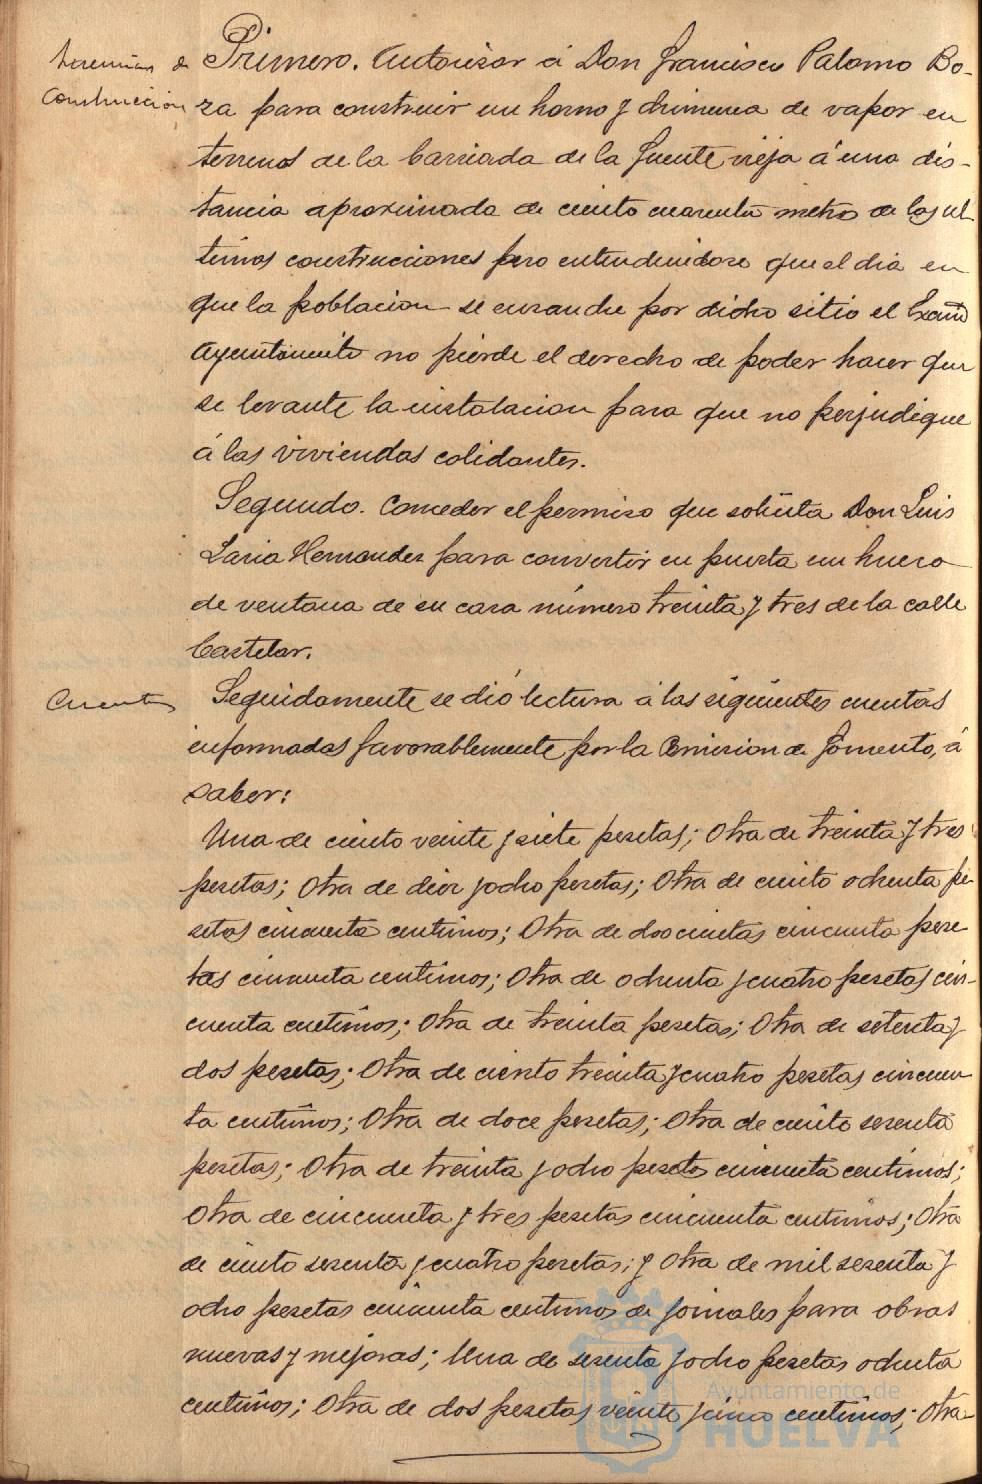 Licencias de
Construccion
Primero. Autorizar á Don Francisco Palomo Bo-
za para construir un horno y chimenea de vapor en
terrenos de la barriada de la Fuente vieja á una dis-
tancia aproximada de ciento cuarenta metros de las ul-
timas construcciones pero entendiendose que el dia en
que la poblacion se ensanche por dicho sitio el Excmo
Ayuntamiento no pierde el derecho de poder hacer que
se levante la instalacion para que no perjudique
á las viviendas colidantes.
Segundo. Conceder el permiso que solicita Don Luis
Laria Hernandez para convertir en puerta un hueco
de ventana de su casa número treinta y tres de la calle
Castelar.
Cuentas
Seguidamente se dió lectura á las siguientes cuentas
informadas favorablemente por la Comision de Fomento, á
saber:
Una de ciento veinte y siete pesetas; Otra de treinta y tres
pesetas; Otra de diez y ocho pesetas; Otra de ciento ochenta pe-
setas cincuenta centimos; Otra de doscientas cincuenta pese-
tas cincuenta centimos; Otra de ochenta y cuatro pesetas cin-
cuenta centimos; Otra de treinta pesetas; Otra de setenta y
dos pesetas; Otra de ciento treinta y cuatro pesetas cincuen-
ta centimos; Otra de doce pesetas; Otra de ciento sesenta
pesetas; Otra de treinta y ocho pesetas cincuenta centimos;
Otra de cincuenta y tres pesetas cincuenta centimos; Otra
de ciento sesenta y cuatro pesetas; y Otra de mil sesenta y
ocho pesetas cincuenta centimos de jornales para obras
nuevas y mejoras; Una de sesenta y ocho pesetas ochenta
centimos; Otra de dos pesetas veinte y cinco centimos; Otra
Ayuntamiento de
HUELVA